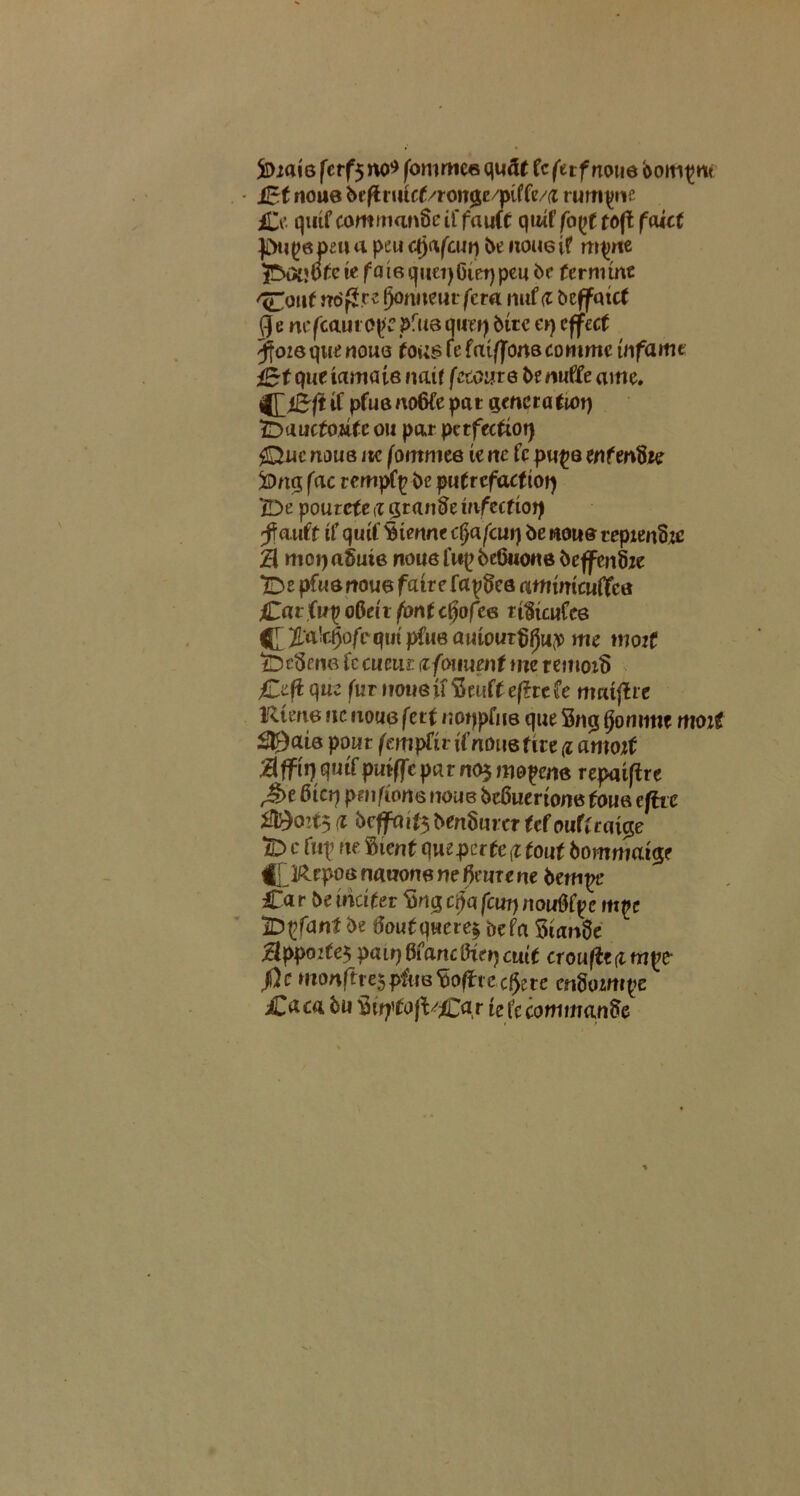 Vrais serfz noꝰ sommes quãt le serf nous dompne
Et nous destruict/ronge/pille/⁊ rumpne
Ce quil commande il fault quil soyt tost faict
Puys peu a peu chascun de nous il myne
Doubte ie fais quen bien peu de termine
Tout nostre honneur sera nul ⁊ deffaict
Je ne scauroye plus quen dire en effect
Fors que nous tous le laissons comme infame
Et que iamais nait secours de nulle ame.
⸿ Est il plus noble par generation
Dauctorite ou par perfection
Que nous ne sommes ie ne le puys entendre
Ung sac remply de putrefaction
De pourete ⁊ grande infection
Fault il quil vienne chascun de nous reprendre
A mon aduis nous luy debuons deffendre
De plus nous faire laydes amimculles
Car luy obeir sont choses ridicules
⸿ La chose qui plus auiourdhuy me mort
Dedens le cueur ⁊ souuent me remord
Cest que sur nous il veult estre le maistre
Riens ne nous sert nonplus que ung homme mort
Mais pour semplir il nous tire ⁊ amort
Affin quil puisse par noz moyens repaistre
Se bien pensions nous debuerions tous estre
Mortz ⁊ deffaitz dendurer tel oultraige
De luy ne vient que perte ⁊ tout dommaige
⸿ Repos nauons ne heure ne demye
Car de inciter ung chascun noublye mye
Disant de doubt querez de la viande
Apportez pain blanc bien cuit crouste ⁊ mye
Ne monstrez plus vostre chere endormye
Caca du vin tost/Car ie le commande